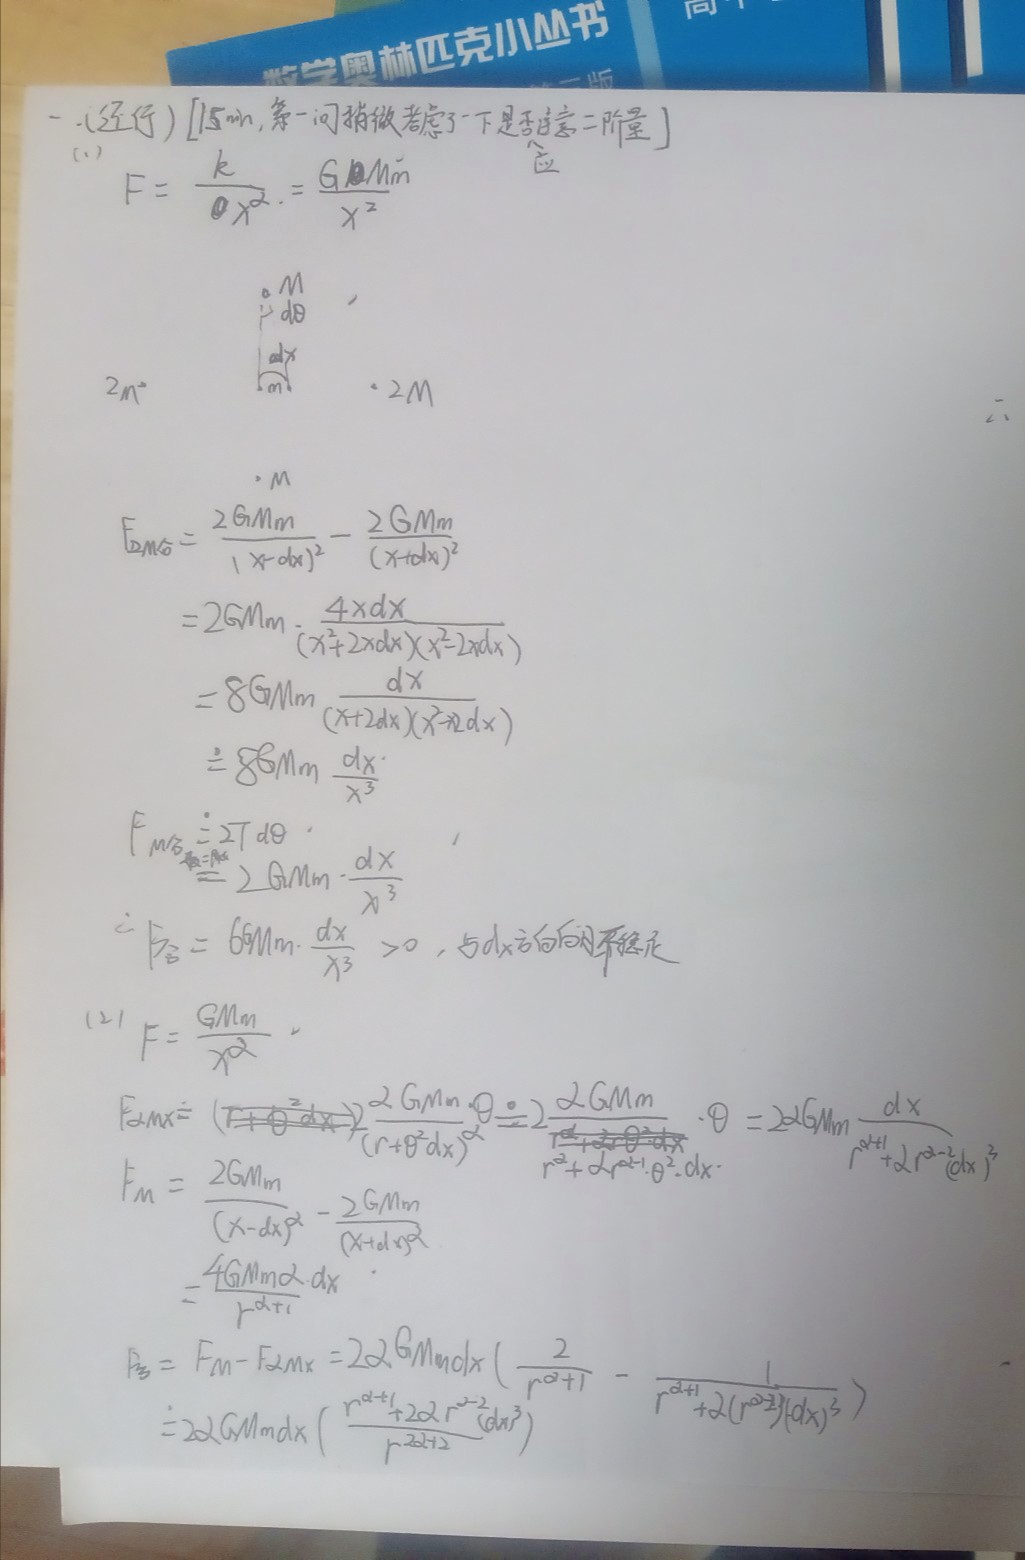 数学奥林匹克小丛书
高中
版
一.(经行)[15min,第一问稍微考虑了一下是否应 二阶量]
(1)
F = k/x² = GMm/x²
M
dθ
dx
2M m 2M
M
F2M合 = 2GMm/(x-dx)² - 2GMm/(x+dx)²
= 2GMm · 4xdx/(x²+2xdx)(x²-2xdx)
= 8GMm dx/(x+2dx)(x²-x2dx)
≐ 8GMm dx/x³
FM合 ≐ 2Tdθ
= 2GMm · dx/x³
∴ F合 = 6GMm · dx/x³ >0, 与dx方向同 不稳定
(2) F = GMm/x^α
FαMx ≐ 2 αGMm/(r+θ²dx)^α · θ ≐ 2 αGMm/r^α+αr^α-1·θ²·dx · θ = 2αGMm dx/r^α+1+αr^α-2(dx)³
FM = 2GMm/(x-dx)^α - 2GMm/(x+dx)^α
= 4GMmα·dx/r^α+1
F合 = FM - FαMx = 2αGMmdx( 2/r^α+1 - 1/r^α+1+α(r^α-2)(dx)³ )
≐ 2αGMmdx( r^α+1+2αr^α-2(dx)³/r^2α+2 )
六